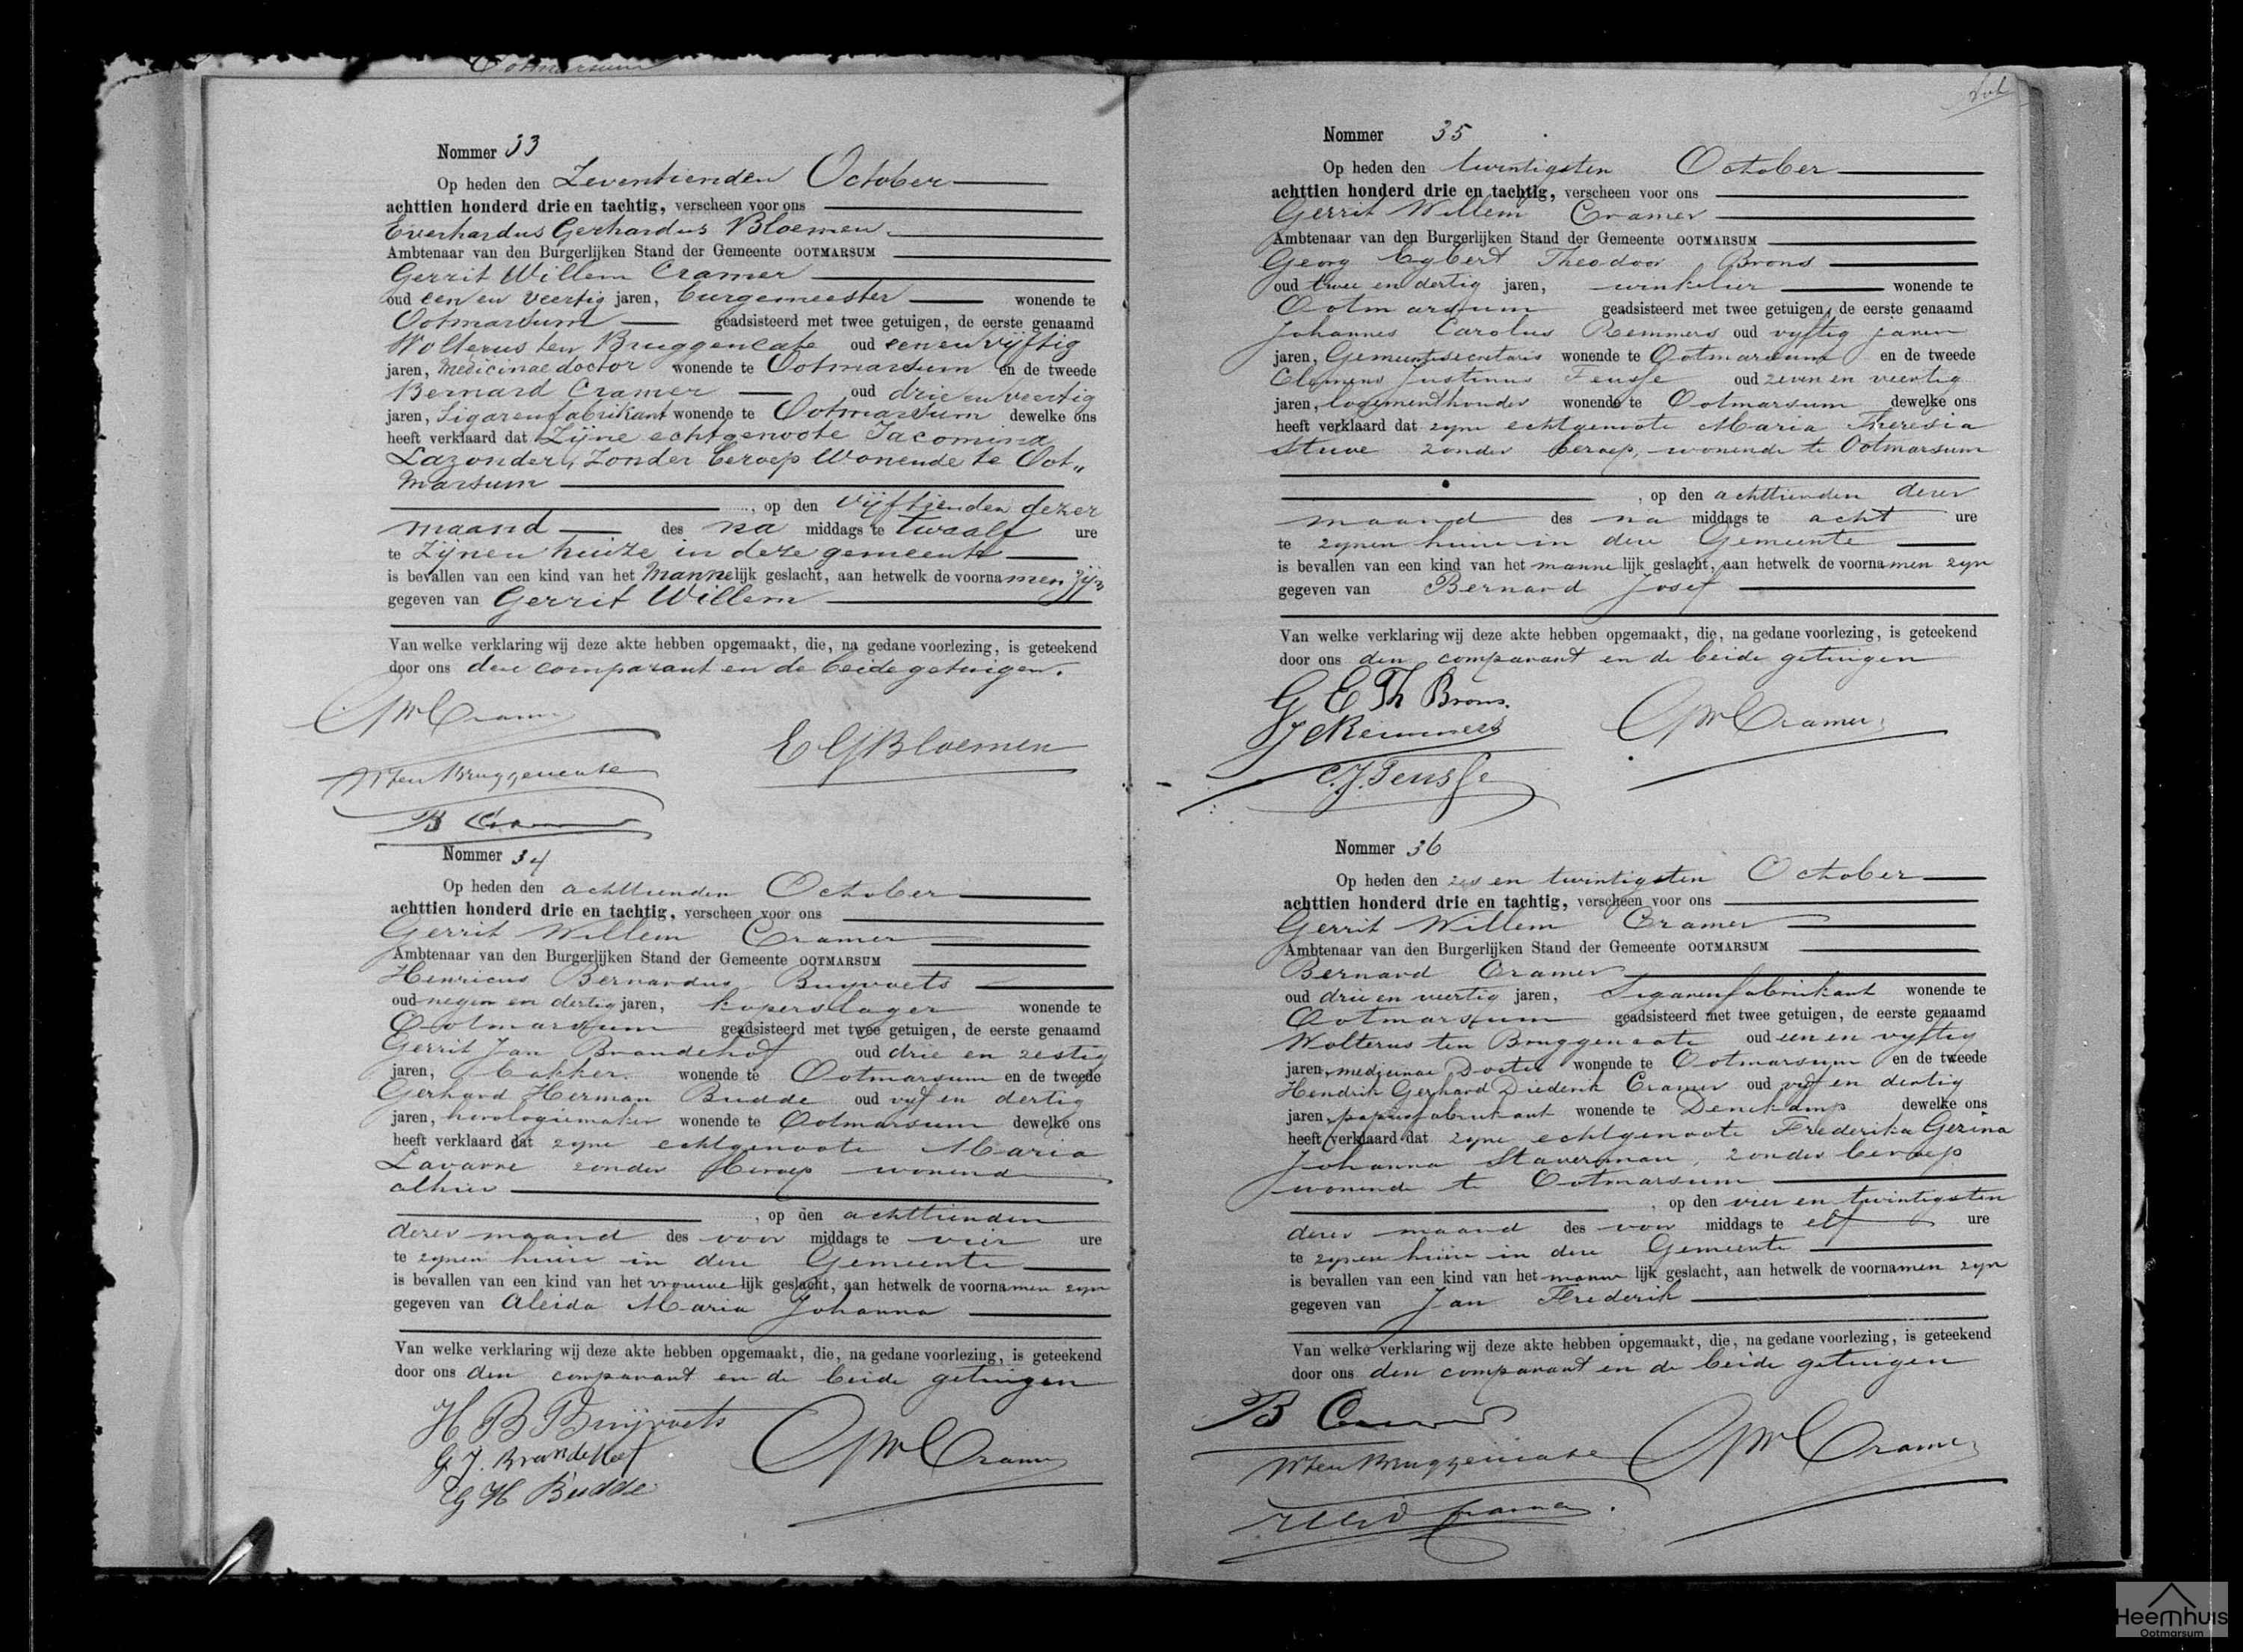 Ootmarsum
Nommer 33
Op heden den Zeventienden October
achttien honderd drie en tachtig, verscheen voor ons
Everhardus Gerhardus Bloemen
Ambtenaar van den Burgerlijken Stand der Gemeente OOTMARSUM
Gerrit Willem Cramer
oud een en veertig jaren, burgemeester wonende te
Ootmarsum geadsisteerd met twee getuigen, de eerste genaamd
Wolterus ten Bruggencate oud een en vijftig
jaren, Medicinae doctor wonende te Ootmarsum en de tweede
Bernard Cramer oud drie en veertig
jaren, Sigarenfabrikant wonende te Ootmarsum dewelke ons
heeft verklaard dat Zijne echtgenoote Jacomina
Lazonder, Zonder beroep Wonende te Oot„
marsum
, op den Vijftienden dezer
maand des na middags te twaalf ure
te Zijnen huize in deze gemeente
is bevallen van een kind van het Mannelijk geslacht, aan hetwelk de voornamen zijn
gegeven van Gerrit Willem
Van welke verklaring wij deze akte hebben opgemaakt, die, na gedane voorlezing, is geteekend
door ons den comparant en de beide getuigen.
GW Cramer
E G Bloemen
W ten Bruggencate
B Cramer
Nommer 34
Op heden den achttienden October
achttien honderd drie en tachtig, verscheen voor ons
Gerrit Willem Cramer
Ambtenaar van den Burgerlijken Stand der Gemeente OOTMARSUM
Henricus Bernardus Buyvoets
oud negen en dertig jaren, koperslager wonende te
Ootmarsum geadsisteerd met twee getuigen, de eerste genaamd
Gerrit Jan Brandehof oud drie en zestig
jaren, bakker wonende te Ootmarsum en de tweede
Gerhard Herman Budde oud vyf en dertig
jaren, horologiemaker wonende te Ootmarsum dewelke ons
heeft verklaard dat zyne echtgenoote Maria
Lavarre zonder beroep wonend
alhier
, op den achttienden
dezer maand des voor middags te vier ure
te zynen huize in deze Gemeente
is bevallen van een kind van het vrouwelijk geslacht, aan hetwelk de voornamen zyn
gegeven van Aleida Maria Johanna
Van welke verklaring wij deze akte hebben opgemaakt, die, na gedane voorlezing, is geteekend
door ons den comparant en de beide getuigen
H B Buijvoets
GW Cramer
G J. Brandehof
G H Budde
Nommer 35
Op heden den twintigsten October
achttien honderd drie en tachtig, verscheen voor ons
Gerrit Willem Cramer
Ambtenaar van den Burgerlijken Stand der Gemeente OOTMARSUM
Georg Egbert Theodoor Brons
oud twee en dertig jaren, winkelier wonende te
Ootmarsum geadsisteerd met twee getuigen, de eerste genaamd
Johannes Carolus Remmers oud vyftig jaren
jaren, Gemeentesecretaris wonende te Ootmarsum en de tweede
Clemens Justinus Feusse oud zeven en veertig
jaren, logementhouder wonende te Ootmarsum dewelke ons
heeft verklaard dat zyne echtgenoote Maria Theresia
Stuve zonder beroep, wonende te Ootmarsum
, op den achttienden dezer
maand des na middags te acht ure
te zynen huize in deze Gemeente
is bevallen van een kind van het mannelijk geslacht, aan hetwelk de voornamen zyn
gegeven van Bernard Josef
Van welke verklaring wij deze akte hebben opgemaakt, die, na gedane voorlezing, is geteekend
door ons den comparant en de beide getuigen
G E Th Brons.
JC Remmers
GW Cramer
C. J. Feusse
Nommer 36
Op heden den zes en twintigsten October
achttien honderd drie en tachtig, verscheen voor ons
Gerrit Willem Cramer
Ambtenaar van den Burgerlijken Stand der Gemeente OOTMARSUM
Bernard Cramer
oud drie en veertig jaren, Sigarenfabrikant wonende te
Ootmarsum geadsisteerd met twee getuigen, de eerste genaamd
Wolterus ten Bruggencate oud een en vyftig
jaren, medicinae Doctor wonende te Ootmarsum en de tweede
Hendrik Gerhard Diederik Cramer oud vyf en dertig
jaren, papierfabrikant wonende te Denekamp dewelke ons
heeft verklaard dat zyne echtgenoote Frederika Gezina
Johanna Staverman, zonder beroep
wonende te Ootmarsum
, op den vier en twintigsten
dezer maand des voor middags te elf ure
te zynen huize in deze Gemeente
is bevallen van een kind van het mannelijk geslacht, aan hetwelk de voornamen zyn
gegeven van Jan Frederik
Van welke verklaring wij deze akte hebben opgemaakt, die, na gedane voorlezing, is geteekend
door ons den comparant en de beide getuigen
B Cramer
W ten Bruggencate
GW Cramer
HGD Cramer
Heemhuis
Ootmarsum